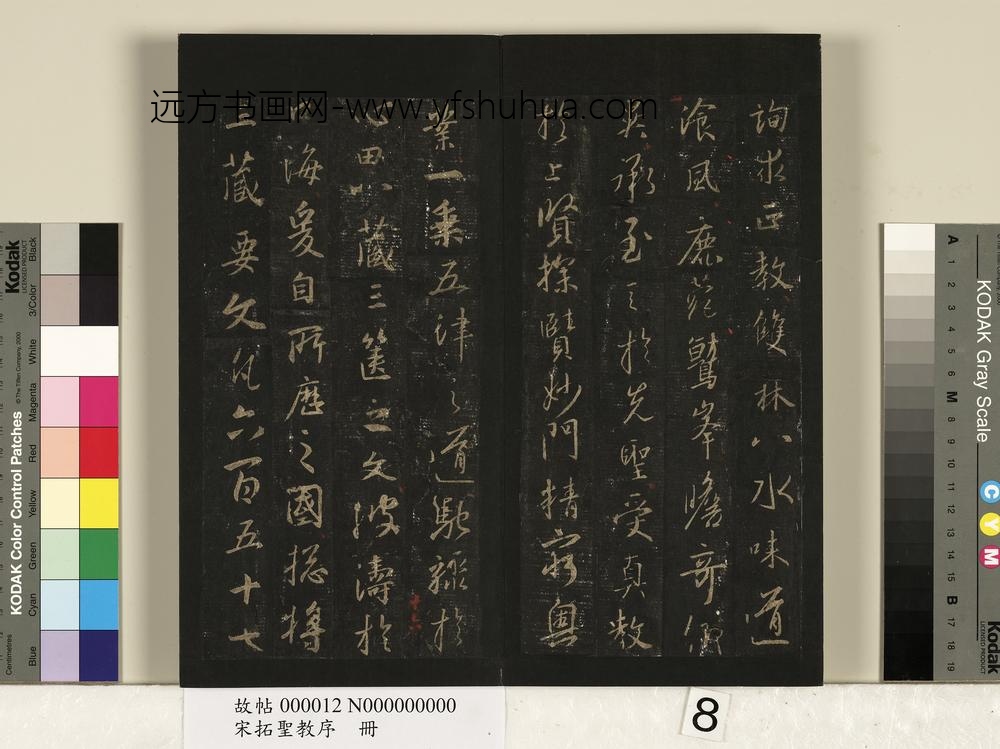 远方书画网-www.yfshuhua.com
詢求正教雙林八水味道
飡風鹿菀鷲峯瞻奇仰
異承至言於先聖受真教
於上賢探賾妙門精窮奧
業一乘五律之道馳驟於
心田八藏三篋之文波濤於
口海爰自所歷之國揔將
三藏要文凡六百五十七
十六
故帖 000012 N000000000
宋拓聖教序 冊
8
Kodak
LICENSED PRODUCT
KODAK Color Control Patches
© The Tiffen Company, 2000
Centimetres
Blue
Cyan
Green
Yellow
Red
Magenta
White
3/Color
Black
KODAK Gray Scale
C
Y
M
Kodak
LICENSED PRODUCT
A 1 2 3 4 5 6 M 8 9 10 11 12 13 14 15 B 17 18 19